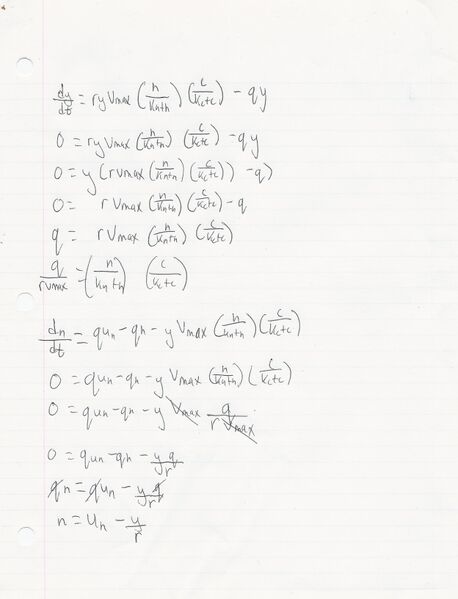 dy/dt = ry Vmax (n/(Kn+n)) (c/(Kc+c)) - qy
0 = ry Vmax (n/(Kn+n)) (c/(Kc+c)) - qy
0 = y (r Vmax (n/(Kn+n)) (c/(Kc+c)) - q)
0 = r Vmax (n/(Kn+n)) (c/(Kc+c)) - q
q = r Vmax (n/(Kn+n)) (c/(Kc+c))
q/(r Vmax) = (n/(Kn+n)) (c/(Kc+c))
dn/dt = qun - qn - y Vmax (n/(Kn+n)) (c/(Kc+c))
0 = qun - qn - y Vmax (n/(Kn+n)) (c/(Kc+c))
0 = qun - qn - y Vmax q/(r Vmax)
0 = qun - qn - yq/r
qn = qun - yq/r
n = un - y/r